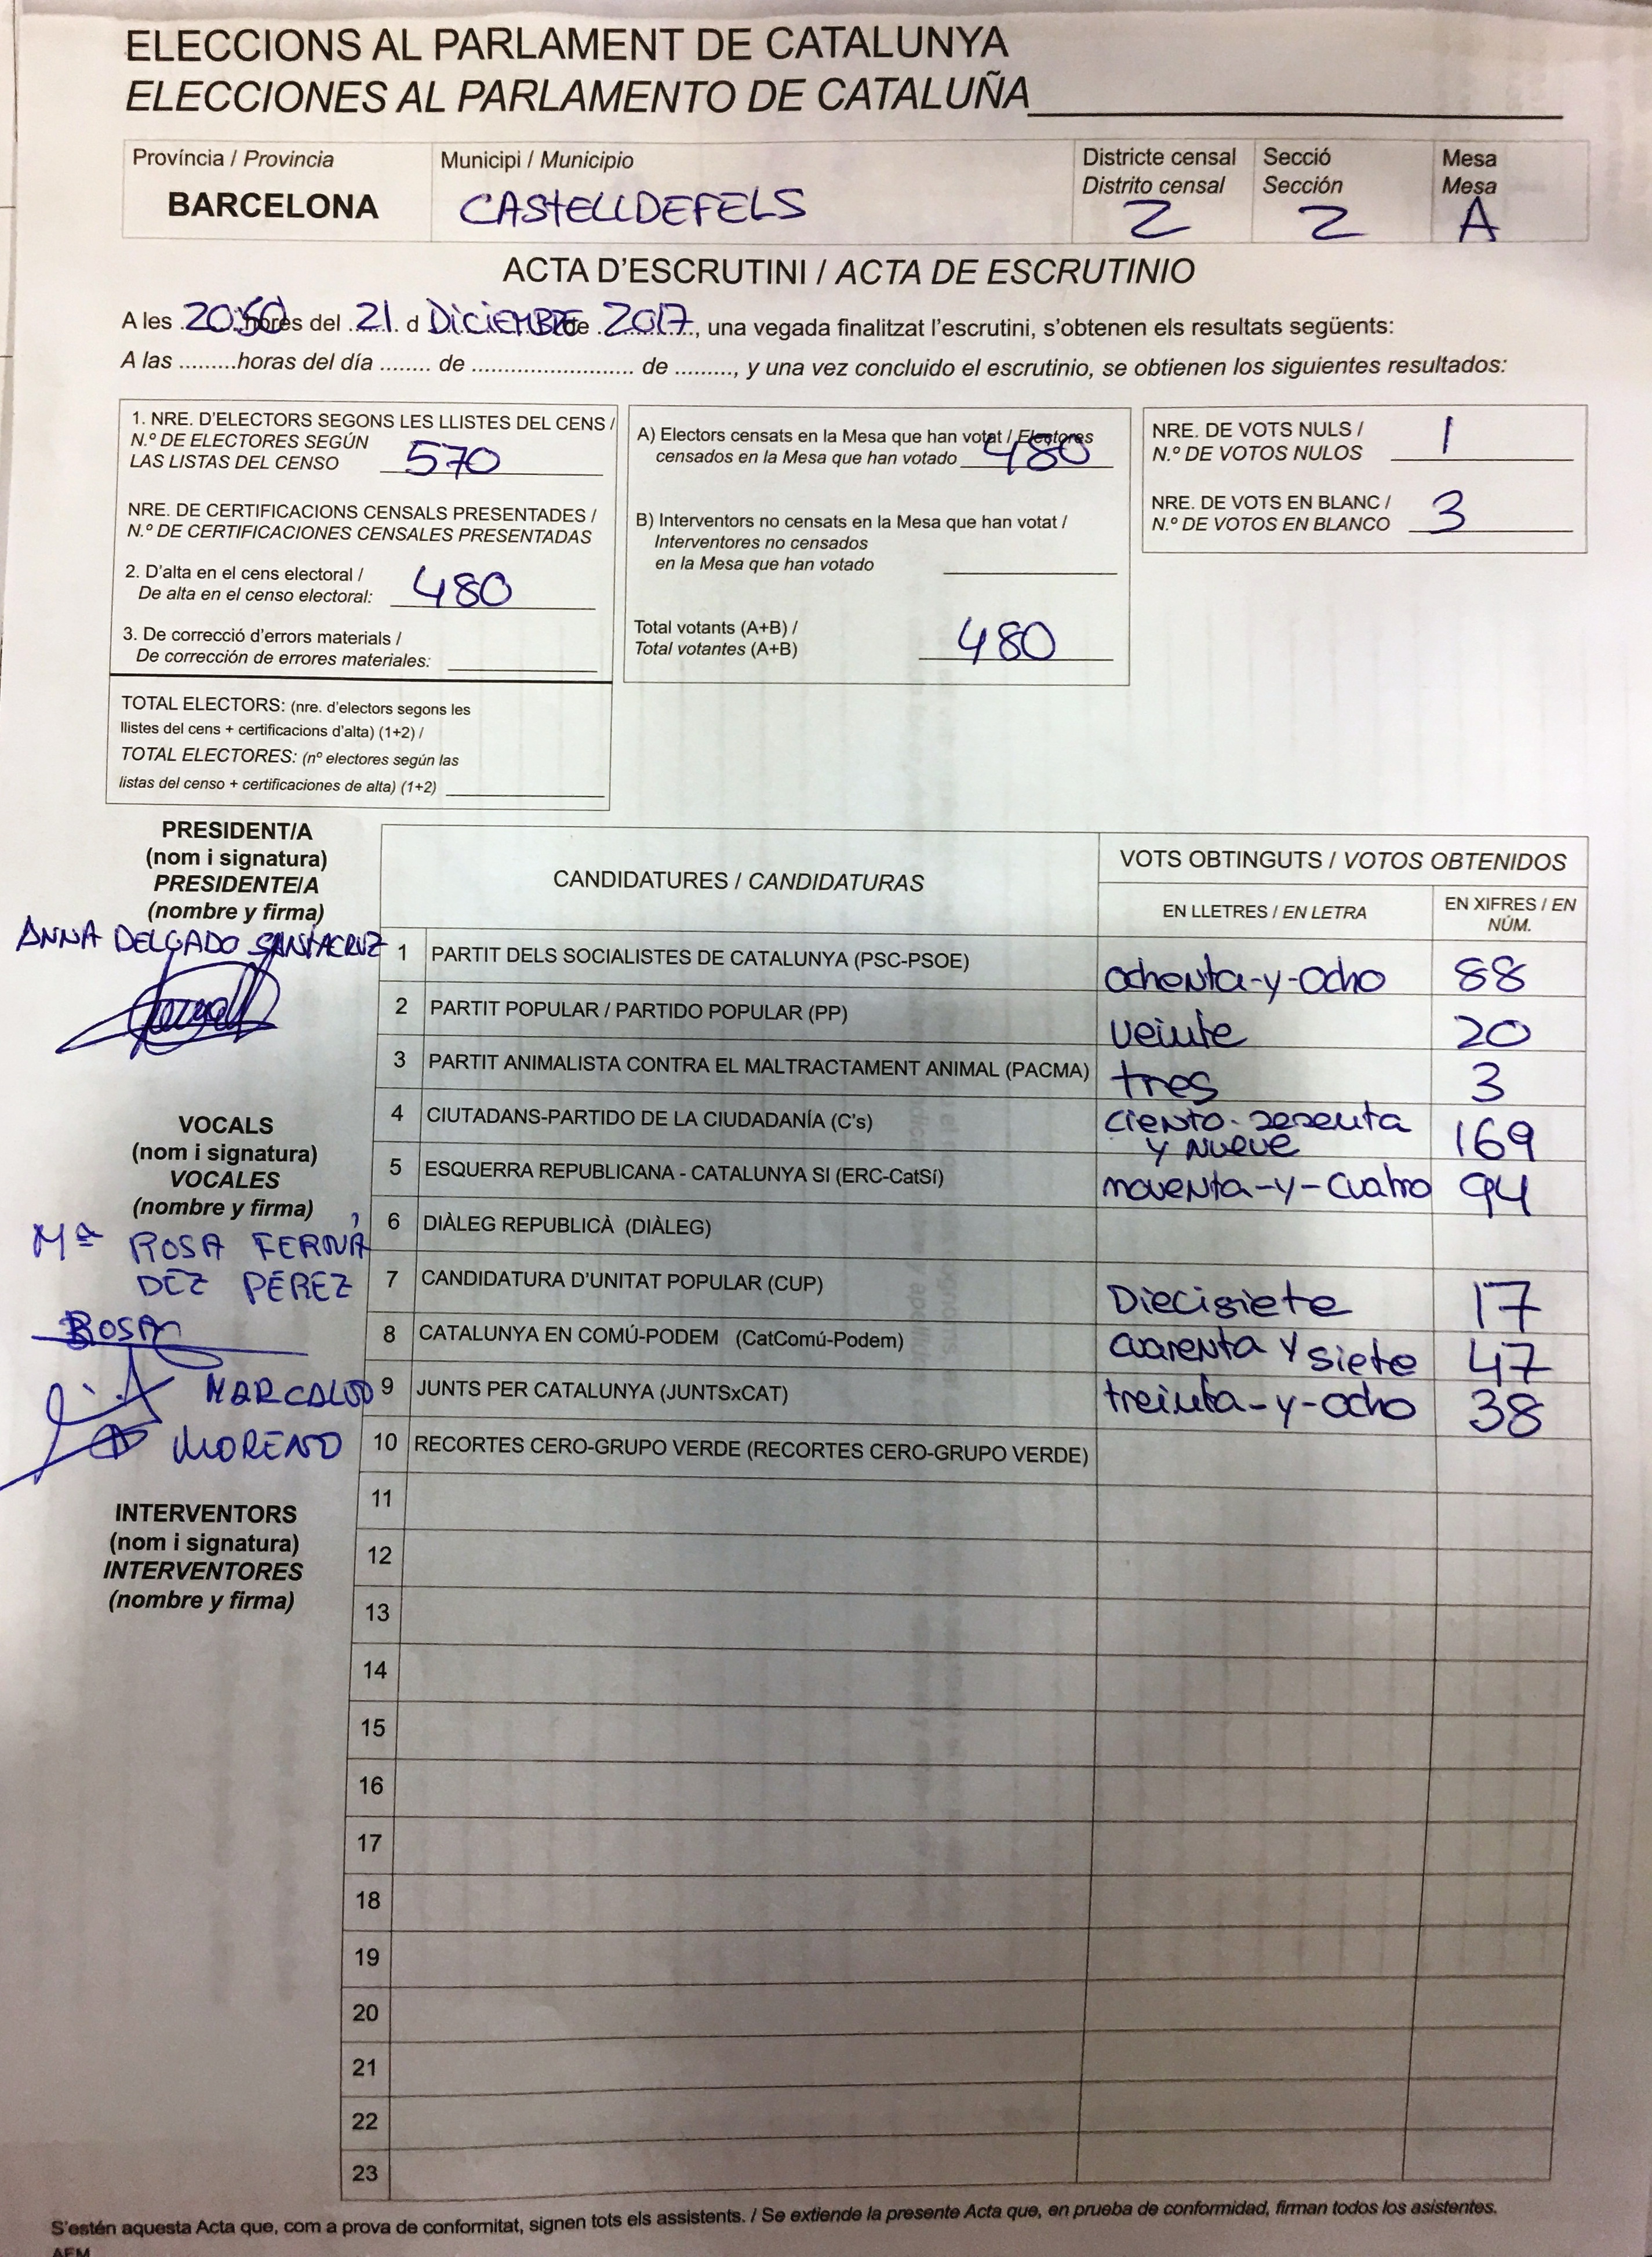 ELECCIONS AL PARLAMENT DE CATALUNYA
ELECCIONES AL PARLAMENTO DE CATALUÑA
Província / Provincia
BARCELONA
Municipi / Municipio
CASTELLDEFELS
Districte censal
Distrito censal
2
Secció
Sección
2
Mesa
Mesa
A
ACTA D'ESCRUTINI / ACTA DE ESCRUTINIO
A les 20:50 hores del 21 d DICIEMBRE de 2017, una vegada finalitzat l'escrutini, s'obtenen els resultats següents:
A las .........horas del día ........ de ......................... de ........., y una vez concluido el escrutinio, se obtienen los siguientes resultados:
1. NRE. D'ELECTORS SEGONS LES LLISTES DEL CENS /
N.º DE ELECTORES SEGÚN
LAS LISTAS DEL CENSO 570
NRE. DE CERTIFICACIONS CENSALS PRESENTADES /
N.º DE CERTIFICACIONES CENSALES PRESENTADAS
2. D'alta en el cens electoral /
De alta en el censo electoral: 480
3. De correcció d'errors materials /
De corrección de errores materiales:
TOTAL ELECTORS: (nre. d'electors segons les
llistes del cens + certificacions d'alta) (1+2) /
TOTAL ELECTORES: (nº electores según las
listas del censo + certificaciones de alta) (1+2)
A) Electors censats en la Mesa que han votat / Electores
censados en la Mesa que han votado 480
B) Interventors no censats en la Mesa que han votat /
Interventores no censados
en la Mesa que han votado
Total votants (A+B) /
Total votantes (A+B) 480
NRE. DE VOTS NULS /
N.º DE VOTOS NULOS 1
NRE. DE VOTS EN BLANC /
N.º DE VOTOS EN BLANCO 3
PRESIDENT/A
(nom i signatura)
PRESIDENTE/A
(nombre y firma)
ANNA DELGADO SANTACRUZ
VOCALS
(nom i signatura)
VOCALES
(nombre y firma)
Mª ROSA FERNÁ
DEZ PÉREZ
ROSA
MARCALO
MORENO
INTERVENTORS
(nom i signatura)
INTERVENTORES
(nombre y firma)
CANDIDATURES / CANDIDATURAS
VOTS OBTINGUTS / VOTOS OBTENIDOS
EN LLETRES / EN LETRA
EN XIFRES / EN
NÚM.
1 PARTIT DELS SOCIALISTES DE CATALUNYA (PSC-PSOE) ochenta-y-ocho 88
2 PARTIT POPULAR / PARTIDO POPULAR (PP) veinte 20
3 PARTIT ANIMALISTA CONTRA EL MALTRACTAMENT ANIMAL (PACMA) tres 3
4 CIUTADANS-PARTIDO DE LA CIUDADANÍA (C's) ciento-sesenta
y nueve 169
5 ESQUERRA REPUBLICANA - CATALUNYA SI (ERC-CatSí) noventa-y-cuatro 94
6 DIÀLEG REPUBLICÀ (DIÀLEG)
7 CANDIDATURA D'UNITAT POPULAR (CUP) Diecisiete 17
8 CATALUNYA EN COMÚ-PODEM (CatComú-Podem) cuarenta y siete 47
9 JUNTS PER CATALUNYA (JUNTSxCAT) treinta-y-ocho 38
10 RECORTES CERO-GRUPO VERDE (RECORTES CERO-GRUPO VERDE)
11
12
13
14
15
16
17
18
19
20
21
22
23
S'estén aquesta Acta que, com a prova de conformitat, signen tots els assistents. / Se extiende la presente Acta que, en prueba de conformidad, firman todos los asistentes.
AEM